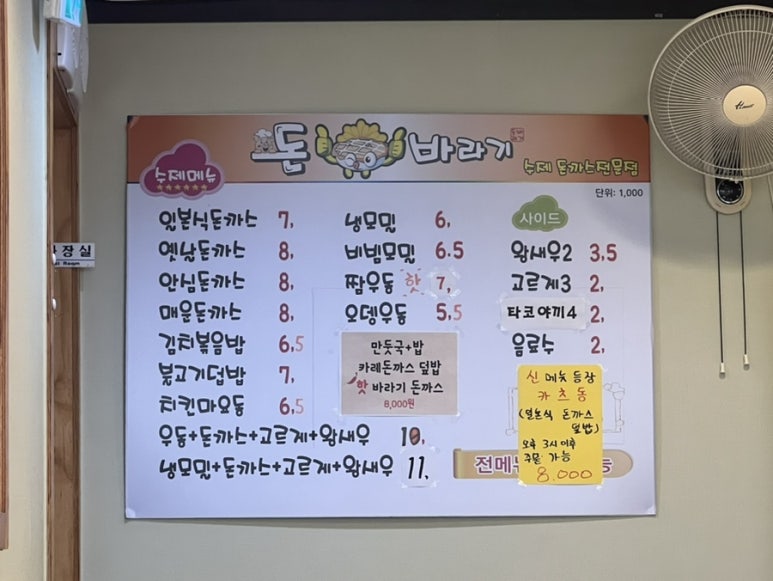 돈 바라기
수제 돈까스전문점
수제메뉴
단위: 1,000
일본식돈까스 7,
옛날돈까스 8,
안심돈까스 8,
매운돈까스 8,
김치볶음밥 6,5
불고기덥밥 7,
치킨마요동 6,5
우동+돈까스+고르게+왕새우 10,
냉모밀+돈까스+고르게+왕새우 11,
냉모밀 6,
비빔모밀 6.5
짬우동 핫 7,
오뎅우동 5,5
만둣국+밥
카레돈까스 덮밥
핫 바라기 돈까스
8,000원
사이드
왕새우2 3,5
고르게3 2,
타코야끼4 2,
음료수 2,
신 메뉴 등장
카츠동
(일본식 돈까스
덮밥)
오후 3시이후
주문 가능
8.000
전메뉴
장실
Room